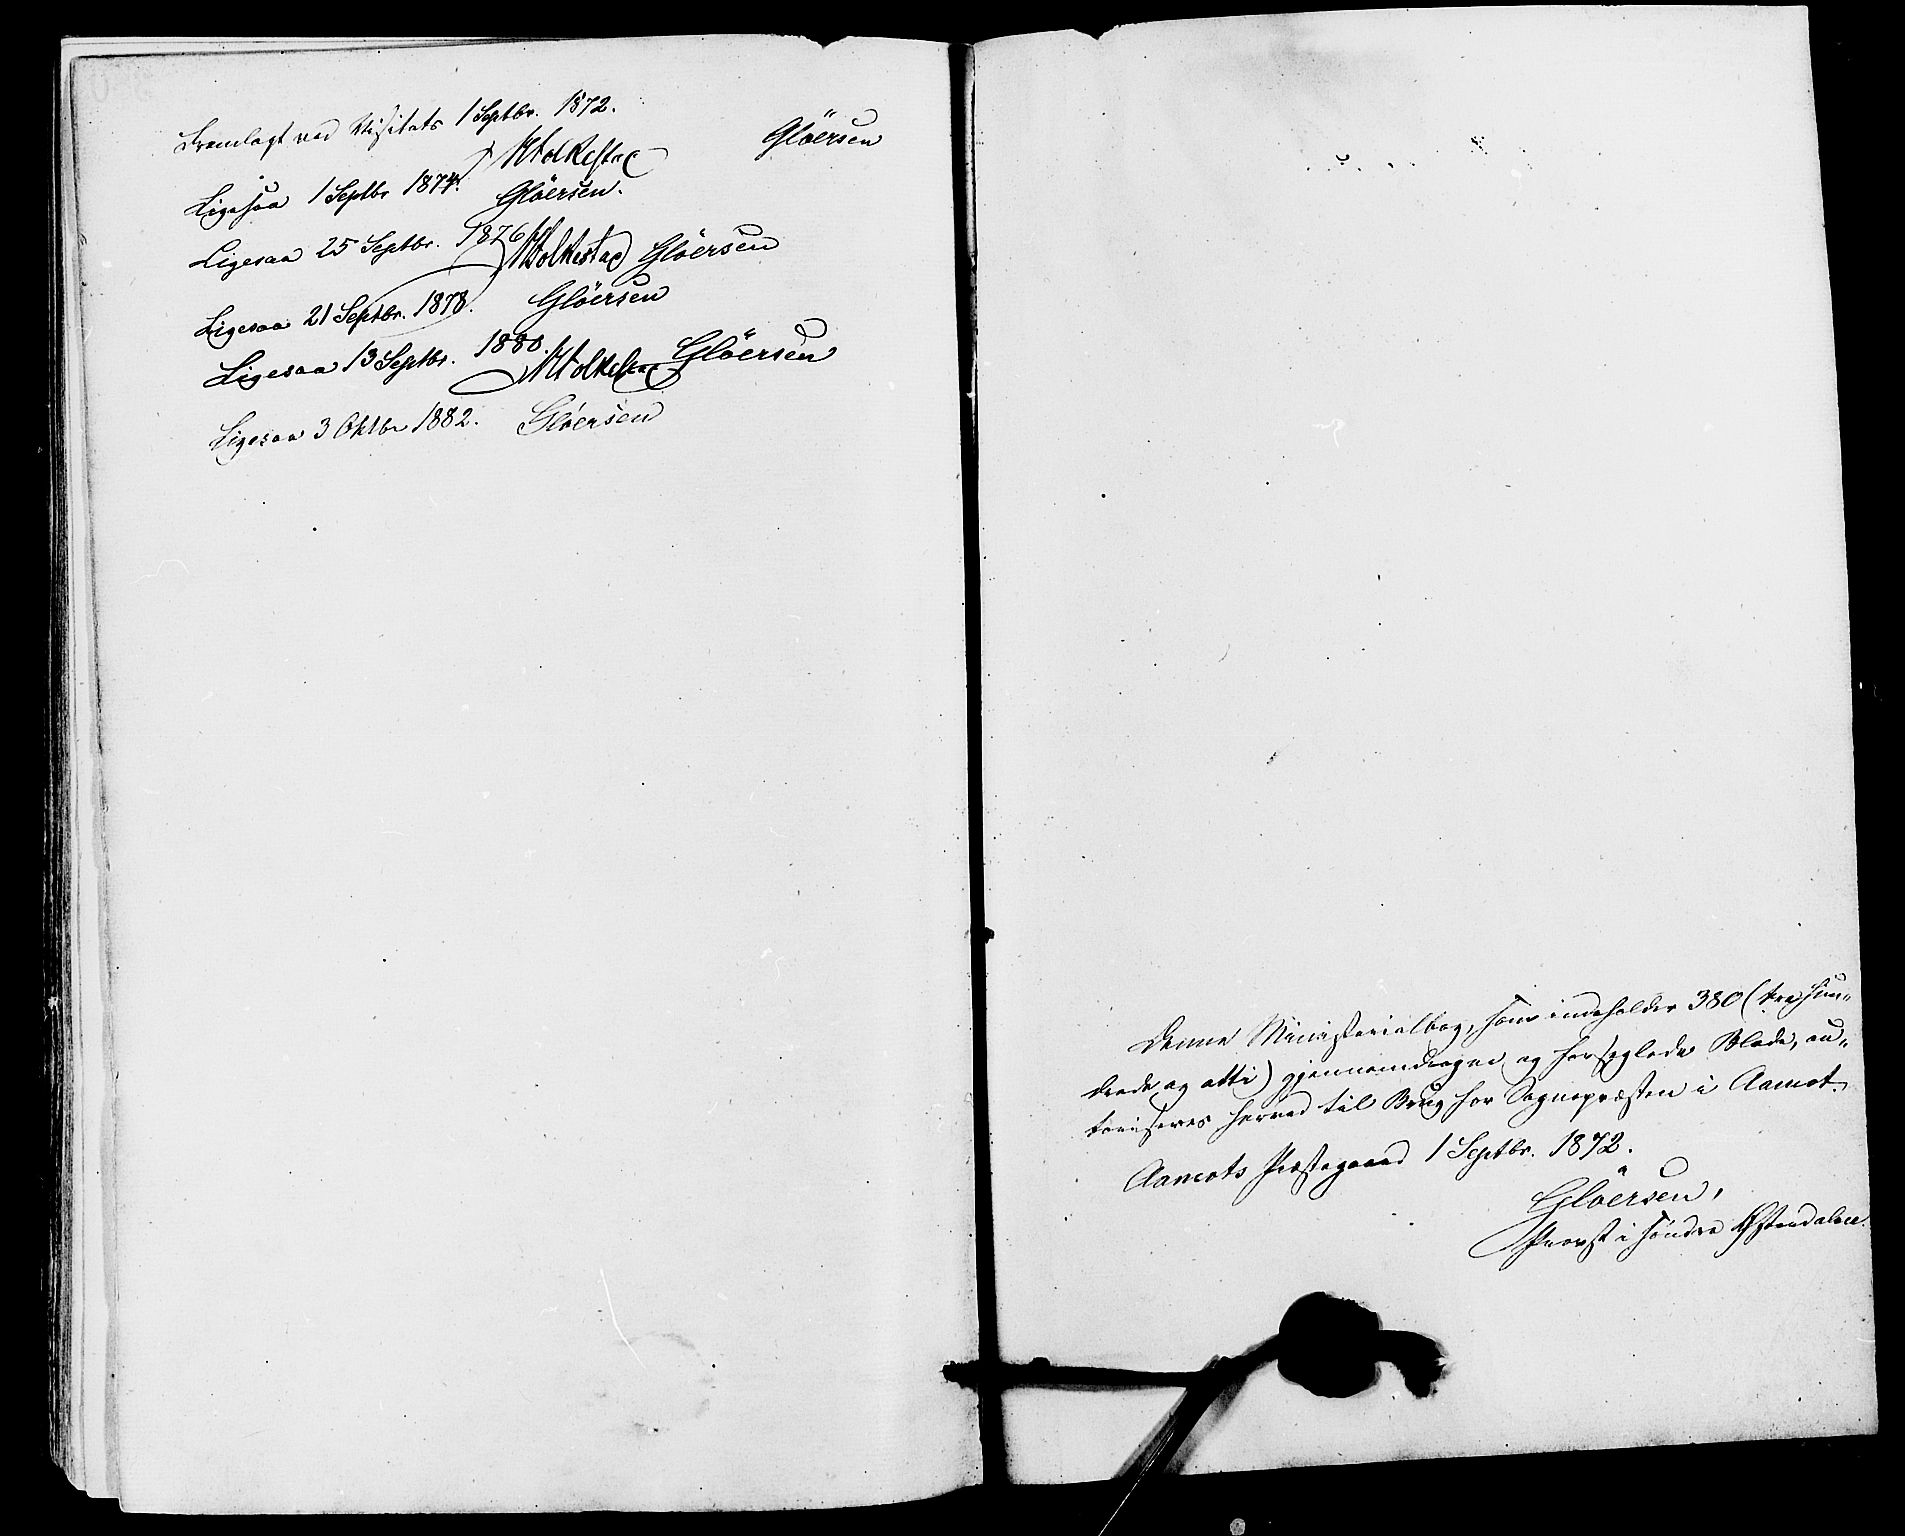 Fremlagt ved Visitats 1 Septbr. 1872. Gløersen
Ligesaa 1 Septbr 1874. Gløersen.
Ligesaa 25 Septbr. 1876 Gløersen
Ligesaa 21 Septbr. 1878. Gløersen
Ligesaa 13 Septbr. 1880. Gløersen
Ligesaa 3 Oktbr 1882. Gløersen
Denne Ministerialbog, som indeholder 380 (tre hun-
drede og otti) gjennemdragne og forseglede Blade, au-
toriseres herved til Brug for Sognepræsten i Aamot
Aamots Præstegaard 1 Septbr. 1872.
Gløersen,
Provst i søndre Østerdalen.